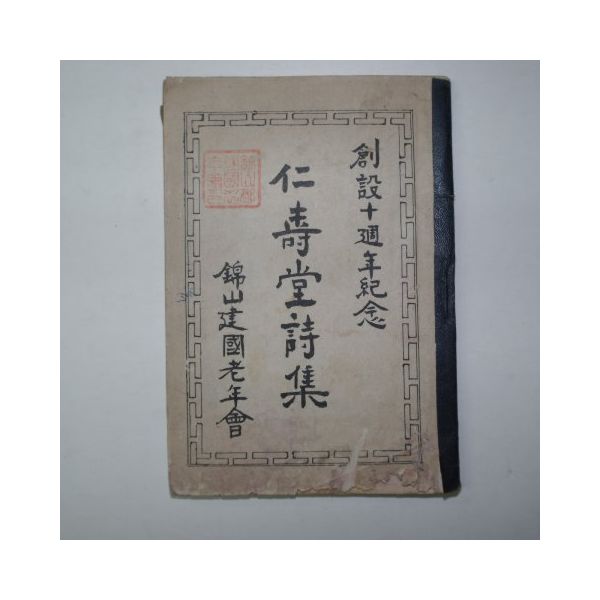 創設十週年紀念
仁壽堂詩集
錦山建國老年會